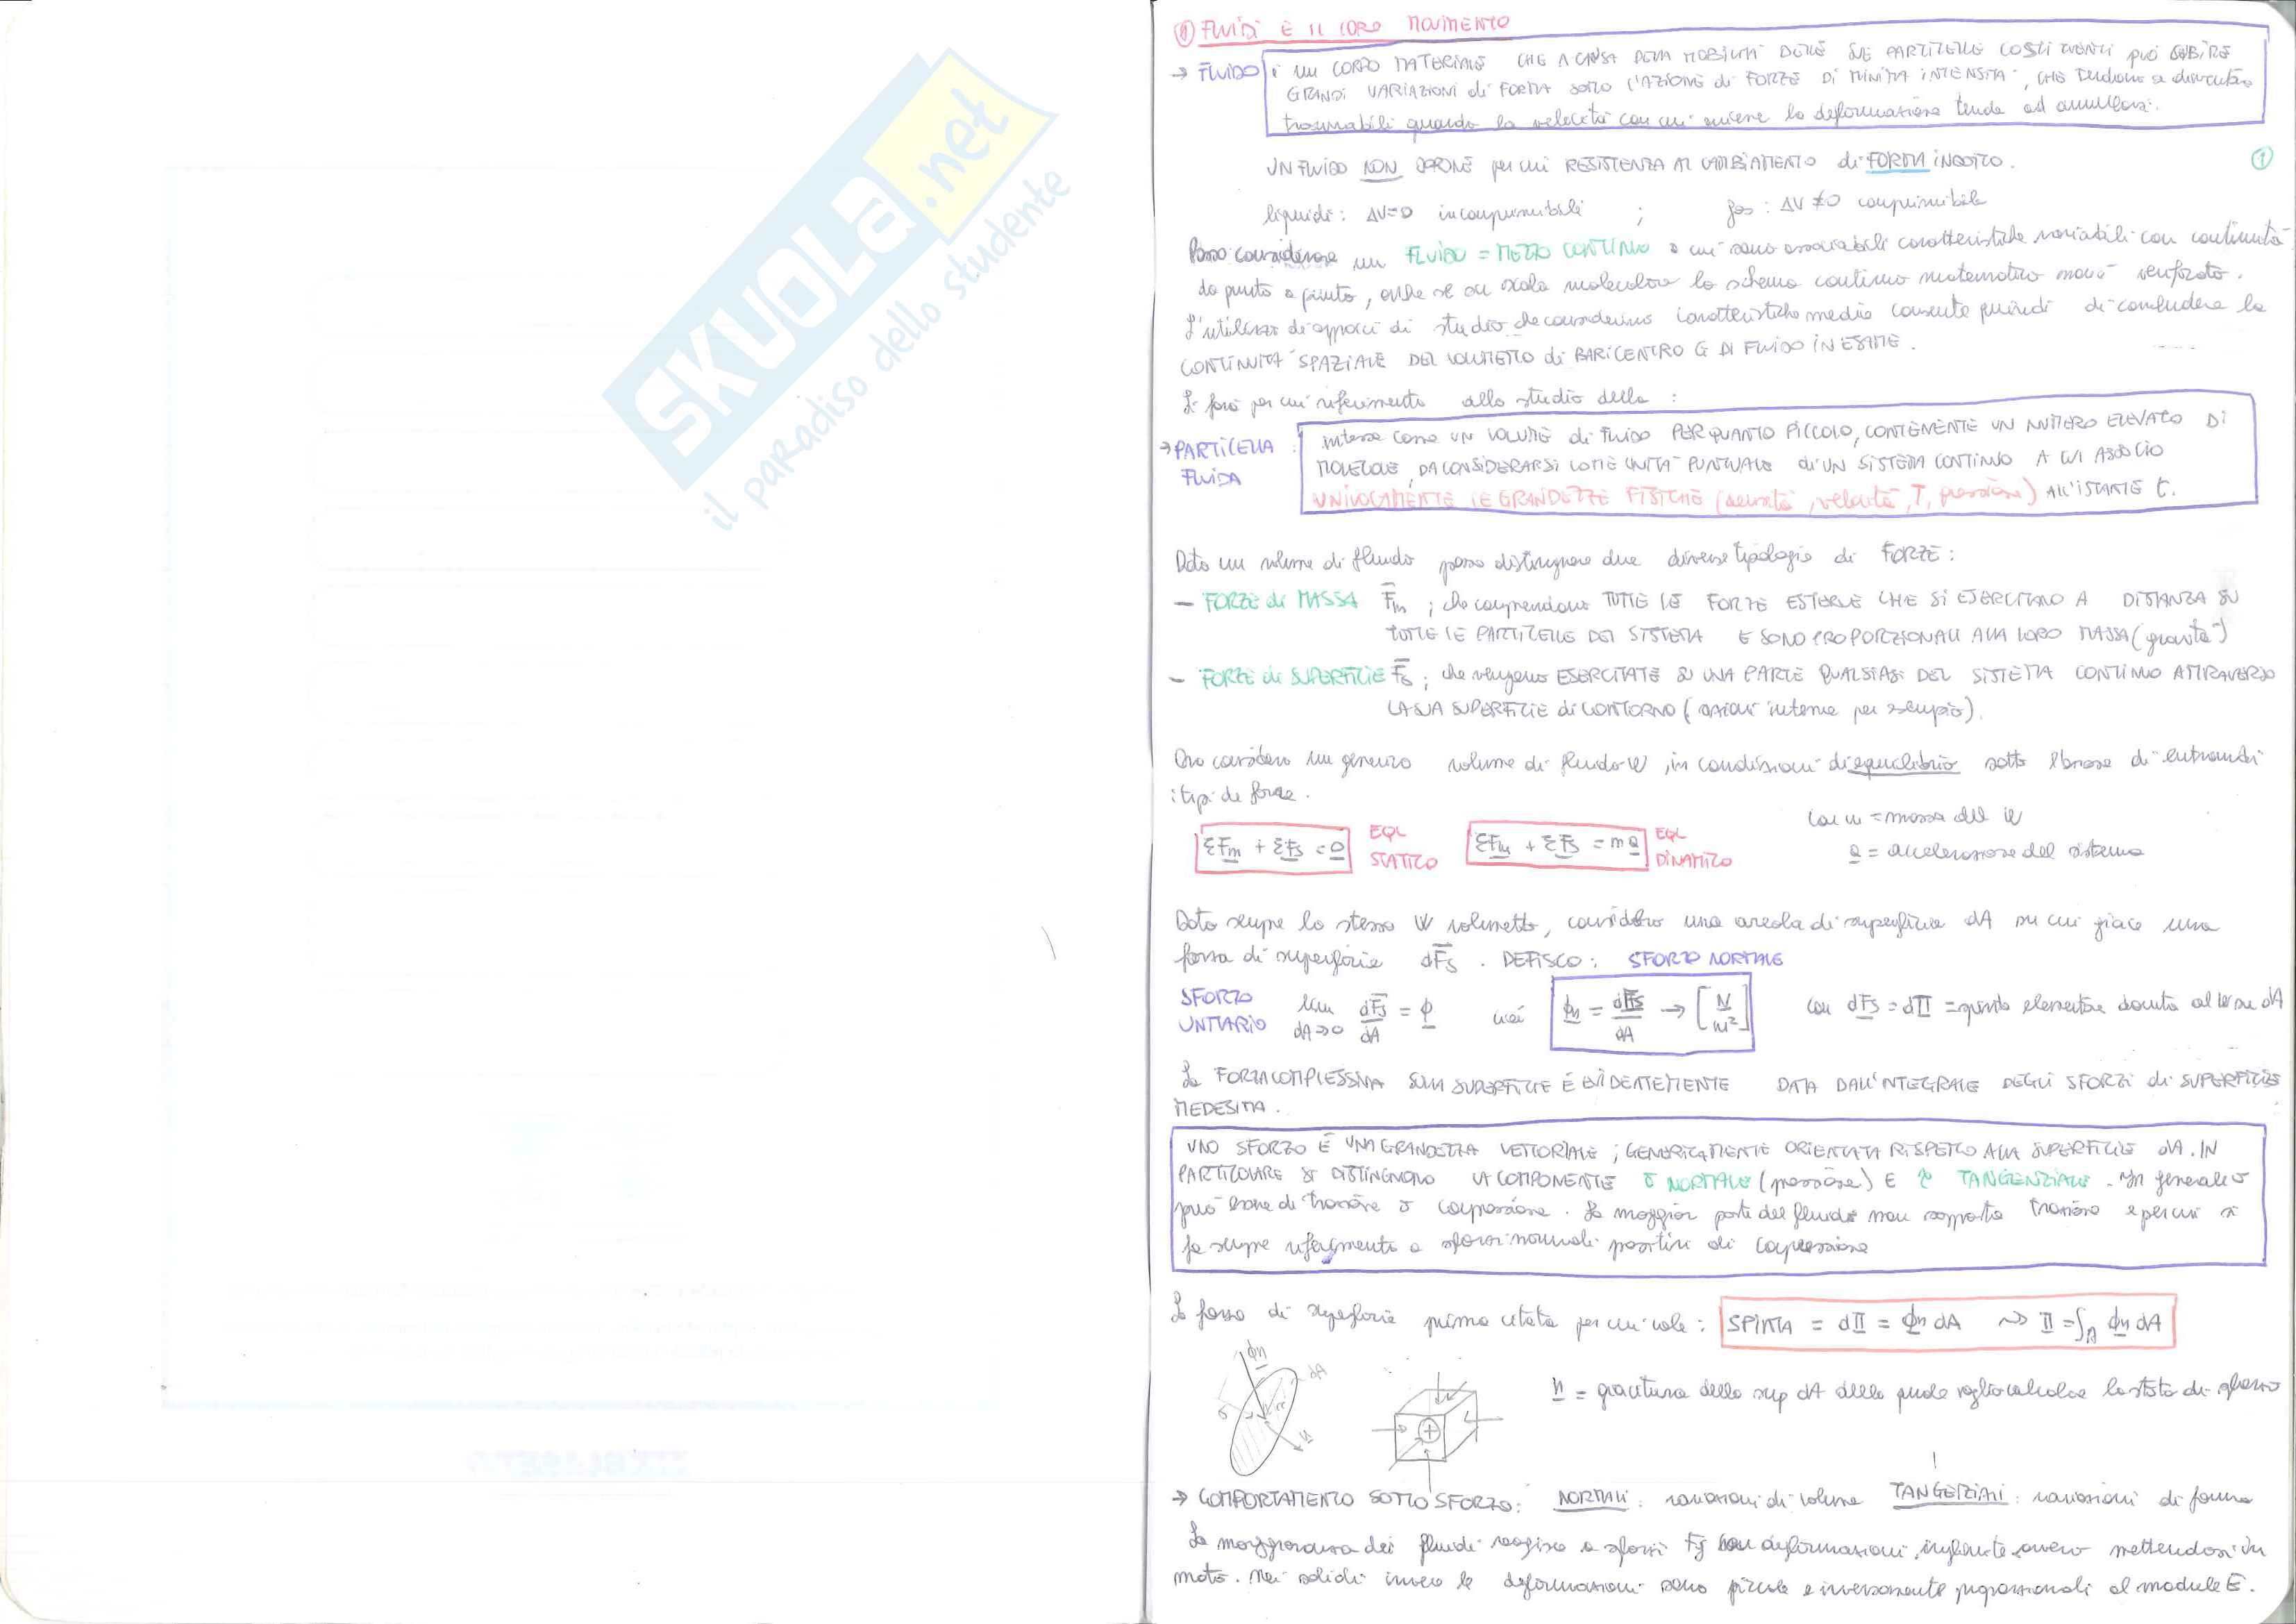 SKUOLA.net
il paradiso dello studente
① FLUIDI E IL LORO MOVIMENTO
→ FLUIDO è un CORPO MATERIALE CHE A CAUSA DELLA MOBILITÀ DELLE SUE PARTICELLE COSTITUENTI può SUBIRE
GRANDI VARIAZIONI di FORMA SOTTO L'AZIONE di FORZE DI MINIMA INTENSITÀ, CHE tendono a diventare
trascurabili quando la velocità con cui avviene la deformazione tende ad annullarsi.
UN FLUIDO NON OPPONE per cui RESISTENZA AL CAMBIAMENTO di FORMA INDOTTO.
①
liquidi: ΔV=0 incomprimibili ; gas: ΔV≠0 comprimibile
Posso considerare un FLUIDO = MEZZO CONTINUO a cui sono associabili caratteristiche variabili con continuità
da punto a punto, anche se su scala molecolare lo schema continuo matematico non è verificato.
L'utilizzo di approcci di studio che considerino caratteristiche medie consente quindi di confondere la
CONTINUITÀ SPAZIALE DEL VOLUMETTO di BARICENTRO G DI FLUIDO IN ESAME.
Si farà per cui riferimento allo studio della :
→ PARTICELLA FLUIDA : intesa come UN VOLUME di FLUIDO PER QUANTO PICCOLO, CONTENENTE UN NUMERO ELEVATO DI
MOLECOLE, DA CONSIDERARSI COME UNITÀ PUNTUALE di UN SISTEMA CONTINUO A CUI ASSOCIO
UNIVOCAMENTE LE GRANDEZZE FISICHE (densità, velocità, T, pressione) ALL'ISTANTE t.
Dato un volume di fluido posso distinguere due diverse tipologie di FORZE:
- FORZE di MASSA F̄m ; che comprendono TUTTE LE FORZE ESTERNE CHE SI ESERCITANO A DISTANZA SU
TUTTE LE PARTICELLE DEL SISTEMA E SONO PROPORZIONALI ALLA LORO MASSA (gravità)
- FORZE di SUPERFICIE F̄s ; che vengono ESERCITATE SU UNA PARTE QUALSIASI DEL SISTEMA CONTINUO ATTRAVERSO
LA SUA SUPERFICIE di CONTORNO (azioni interne per esempio).
Ora considero un generico volume di fluido W, in condizioni di equilibrio sotto l'azione di entrambi
i tipi di forze.
ΣFm + ΣFs = 0 EQL STATICO ΣFm + ΣFs = ma EQL DINAMICO
con m = massa del W
a = accelerazione del sistema
Dato sempre lo stesso W volumetto, considero una areola di superficie dA su cui giace una
forza di superficie dF̄s. DEFISCO: SFORZO NORMALE
SFORZO UNITARIO lim dA→0 dF̄s/dA = φ cioè φn = dFs/dA → [N/m²] con dFs = dΠ = spinta elementare dA
La FORZA COMPLESSIVA SULLA SUPERFICIE È EVIDENTEMENTE DATA DALL'INTEGRALE DEGLI SFORZI di SUPERFICIE
MEDESIMA.
UNO SFORZO È UNA GRANDEZZA VETTORIALE ; GENERICAMENTE ORIENTATA RISPETTO ALLA SUPERFICIE dA. IN
PARTICOLARE SI DISTINGUONO LA COMPONENTE σ NORMALE (pressione) E τ TANGENZIALE. In generale σ
può essere di trazione o compressione. La maggior parte dei fluidi non sopporta trazione e per cui si
fa sempre riferimento a sforzi normali positivi di compressione
La forza di superficie prima citata per cui vale: SPINTA = dΠ = φn dA ~> Π = ∫A φn dA
φn dA σ τ n
n = giacitura della sup dA della quale voglio calcolare lo stato di sforzo
→ COMPORTAMENTO SOTTO SFORZO: NORMALI: variazioni di volume TANGENZIALI: variazioni di forma
La maggioranza dei fluidi reagisce a sforzi con deformazioni infinite ovvero mettendosi in
moto. Nei solidi invece le deformazioni sono piccole e inversamente proporzionali al modulo E.